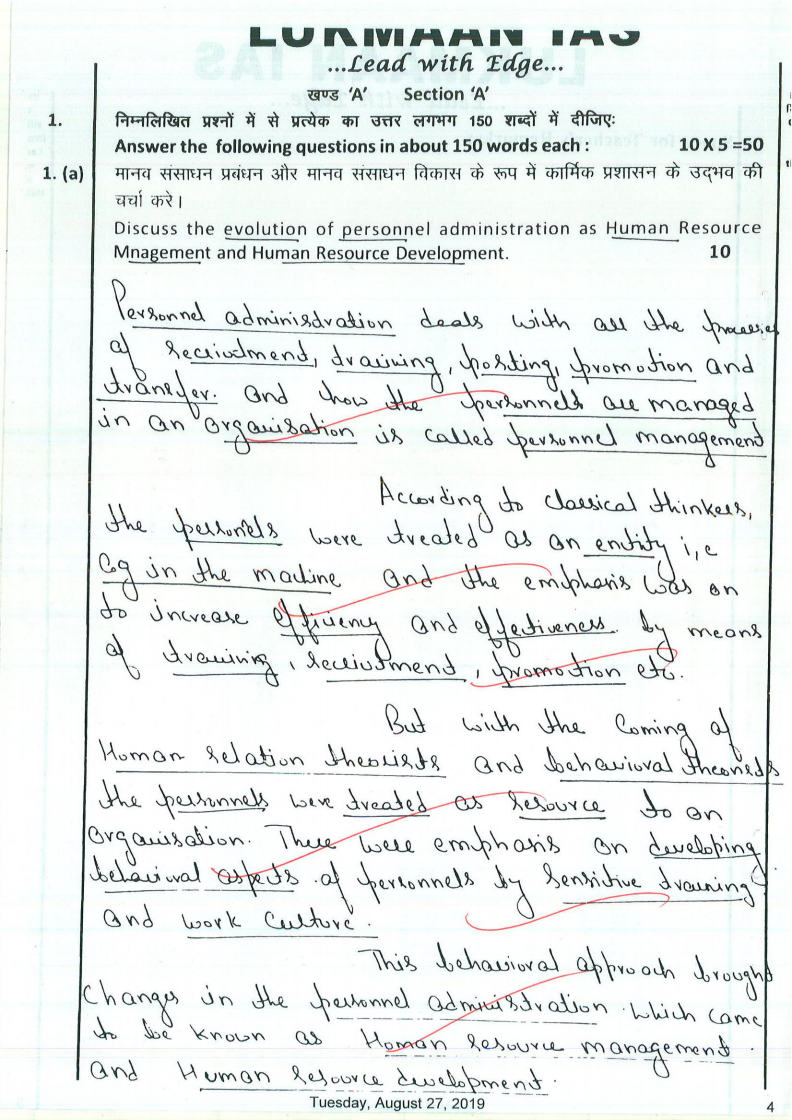 LUKMAAN IAS
...Lead with Edge...
खण्ड 'A' Section 'A'
1. निम्नलिखित प्रश्नों में से प्रत्येक का उत्तर लगभग 150 शब्दों में दीजिए:
Answer the following questions in about 150 words each : 10 X 5 =50
1. (a) मानव संसाधन प्रबंधन और मानव संसाधन विकास के रूप में कार्मिक प्रशासन के उद्भव की
चर्चा करे।
Discuss the evolution of personnel administration as Human Resource
Mnagement and Human Resource Development. 10
Personnel administration deals with all the processes
of recruitment, training, posting, promotion and
transfer. and how the personnels are managed
in an organisation is called personnel management
According to classical thinkers,
the personnels were treated as an entity i,e
Cog in the machine and the emphasis was on
to increase efficiency and effectiveness by means
of training, recruitment, promotion etc.
But with the Coming of
Human relation theorists and behavioral theorists
the personnels were treated as resource to an
organisation. There were emphasis on developing
behavioral aspects of personnels by sensitive training
and work Culture.
This behavioral approach brought
Changes in the personnel administration. which came
to be known as Human resource management.
and Human resource development.
Tuesday, August 27, 2019 4